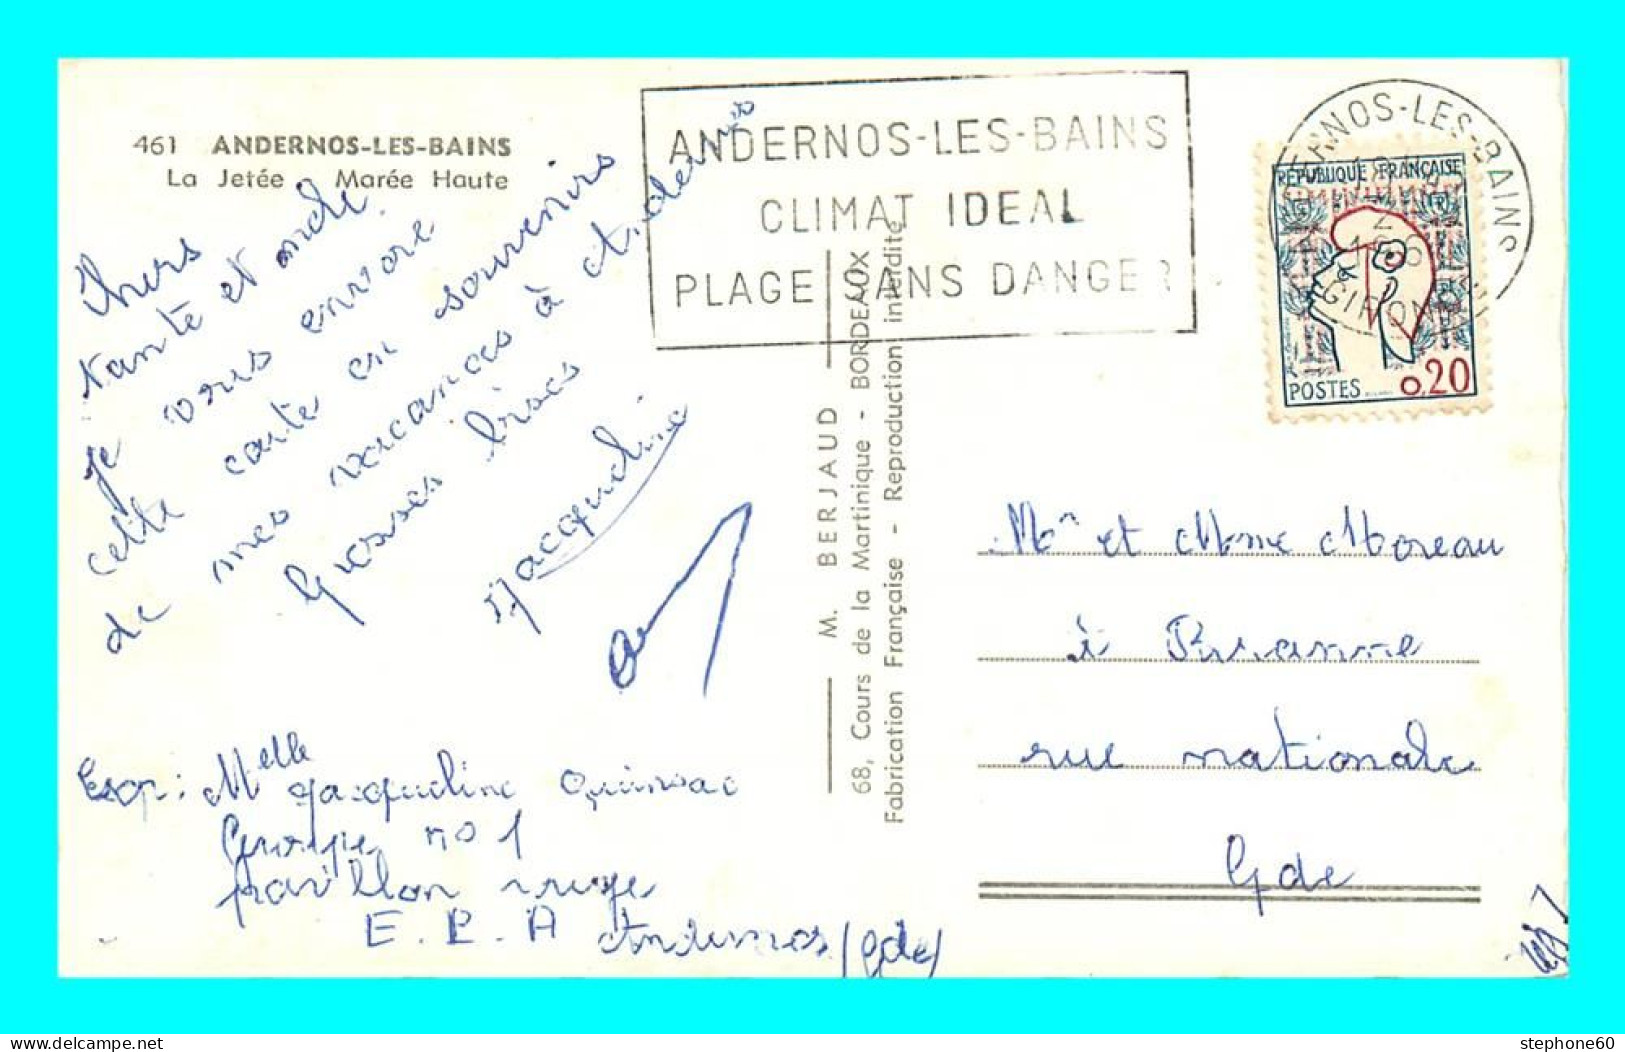 461 ANDERNOS-LES-BAINS
La Jetée Marée Haute
Chers
tante et oncle
je vous envoie
cette carte en souvenirs
de mes vacances à Andernos
Grosses bises
Jacqueline
Exp: Melle Jacqueline Quinsac
Groupe no 1
pavillon rouge
E. P. A Andernos (Gde)
M. BERJAUD
68, Cours de la Martinique - BORDEAUX
Fabrication Française - Reproduction interdite
ANDERNOS-LES-BAINS
CLIMAT IDEAL
PLAGE SANS DANGER
ERNOS-LES-BAINS
GIRONDE
REPUBLIQUE FRANÇAISE
POSTES 0,20
Mr et Mme Moreau
à
rue nationale
Gde
stephone60